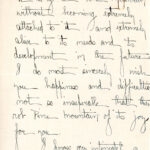 without becoming extremely
attached to it and extremely
alive to its needs and to
development in the future
I do most sincerely wish
you happiness and difficulties
not so inseparable that
not fine mountains of joy
for you
I know